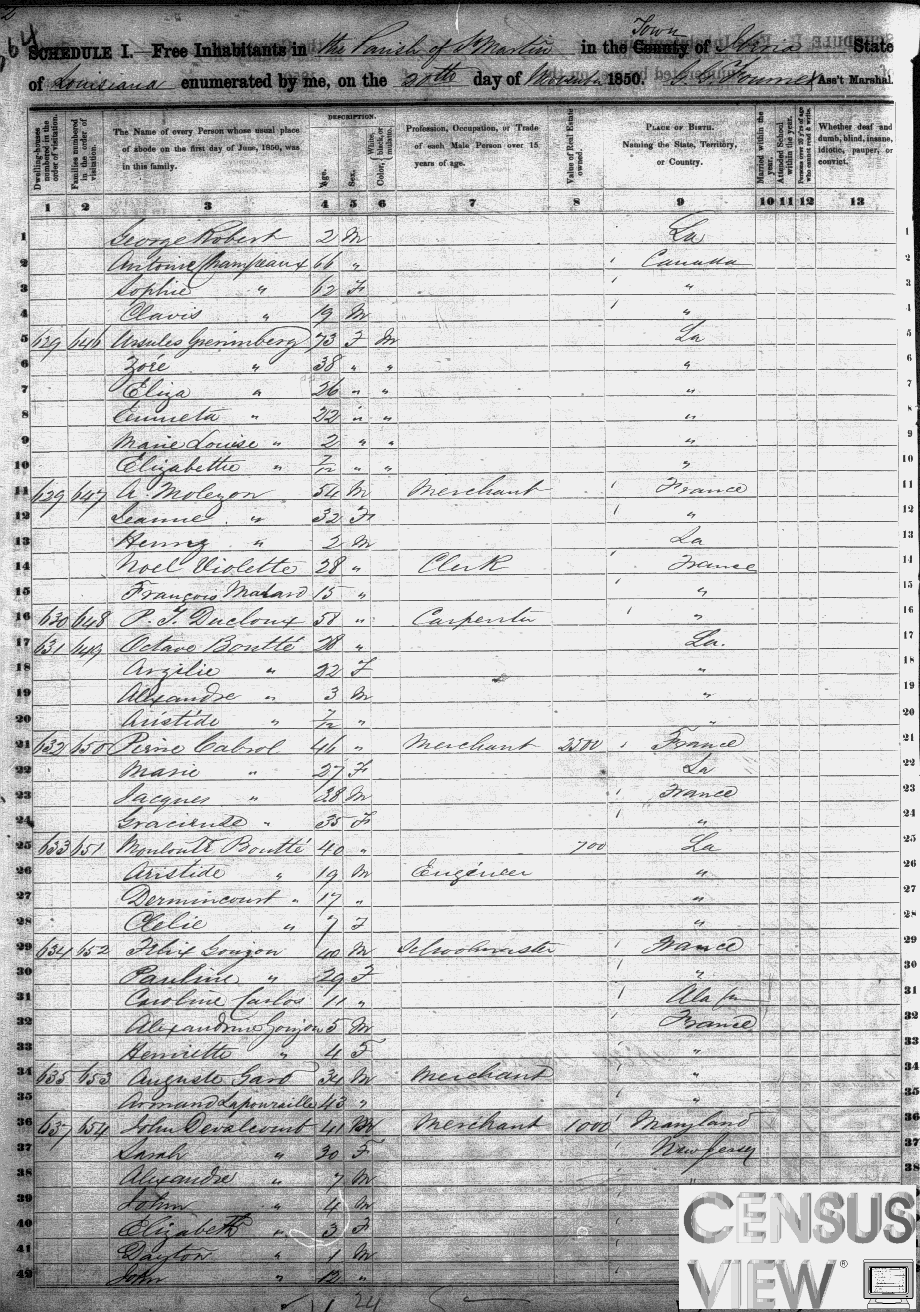 64
SCHEDULE I.—Free Inhabitants in the Parish of St Martin in the County Town of State
of Louisiana enumerated by me, on the 20th day of November 1850. Ass't Marshal.
DESCRIPTION.
Dwelling-houses numbered in the order of visitation.
Families numbered in the order of visitation.
The Name of every Person whose usual place of abode on the first day of June, 1850, was in this family.
Age.
Sex.
Color, White, black, or mulatto.
Profession, Occupation, or Trade of each Male Person over 15 years of age.
Value of Real Estate owned.
PLACE OF BIRTH. Naming the State, Territory, or Country.
Married within the year.
Attended School within the year.
Persons over 20 y'rs of age who cannot read & write.
Whether deaf and dumb, blind, insane, idiotic, pauper, or convict.
1 2 3 4 5 6 7 8 9 10 11 12 13
1 George Robert 2 M La 1
2 Antoine Champeaux 66 " Canada 2
3 Sophie " 62 F " 3
4 Clavis " 19 M " 4
5 629 646 Ursules Grenimberg 73 F M La 5
6 Zoré " 38 " " " 6
7 Eliza " 26 " " " 7
8 Emmeta " 22 " " " 8
9 Marie Louise " 2 " " " 9
10 Elizabethe " 7/12 " " " 10
11 629 647 A. Molezon 54 M Merchant France 11
12 Jeanne " 32 F " 12
13 Henry " 2 M La 13
14 Noel Violette 28 " Clerk France 14
15 François Malard 15 " " 15
16 630 648 P. J. Ducloux 58 " Carpenter " 16
17 631 649 Octave Boutté 28 " La. 17
18 Argilie " 22 F " 18
19 Alexandre " 3 M " 19
20 Aristide " 7/12 " " 20
21 632 650 Pierre Cabrol 46 " Merchant 2500 France 21
22 Marie " 27 F La 22
23 Jacques " 38 M France 23
24 Graciente " 35 F " 24
25 633 651 Boutté 40 " 700 La 25
26 Aristide " 19 M Engéneer " 26
27 Dermincourt " 17 " " 27
28 Clelie " 7 F " 28
29 634 652 Felix Goujon 40 M Schoolmaster France 29
30 Pauline " 29 F " 30
31 Caroline Carlos 11 " Ala 31
32 Alexandrine Goujon 5 M France 32
33 Henriette " 4 F " 33
34 635 653 Auguste Gard 34 M Merchant " 34
35 Armand Lapouraille 43 " " 35
36 637 654 John Devalcourt 41 M Merchant 1000 Maryland 36
37 Sarah " 30 F New Jersey 37
38 Alexandre " 7 M " 38
39 John " 4 M
40 Elizabeth " 3 F
41 Dayton " 1 M
42 John " 12 "
CENSUS
VIEW®